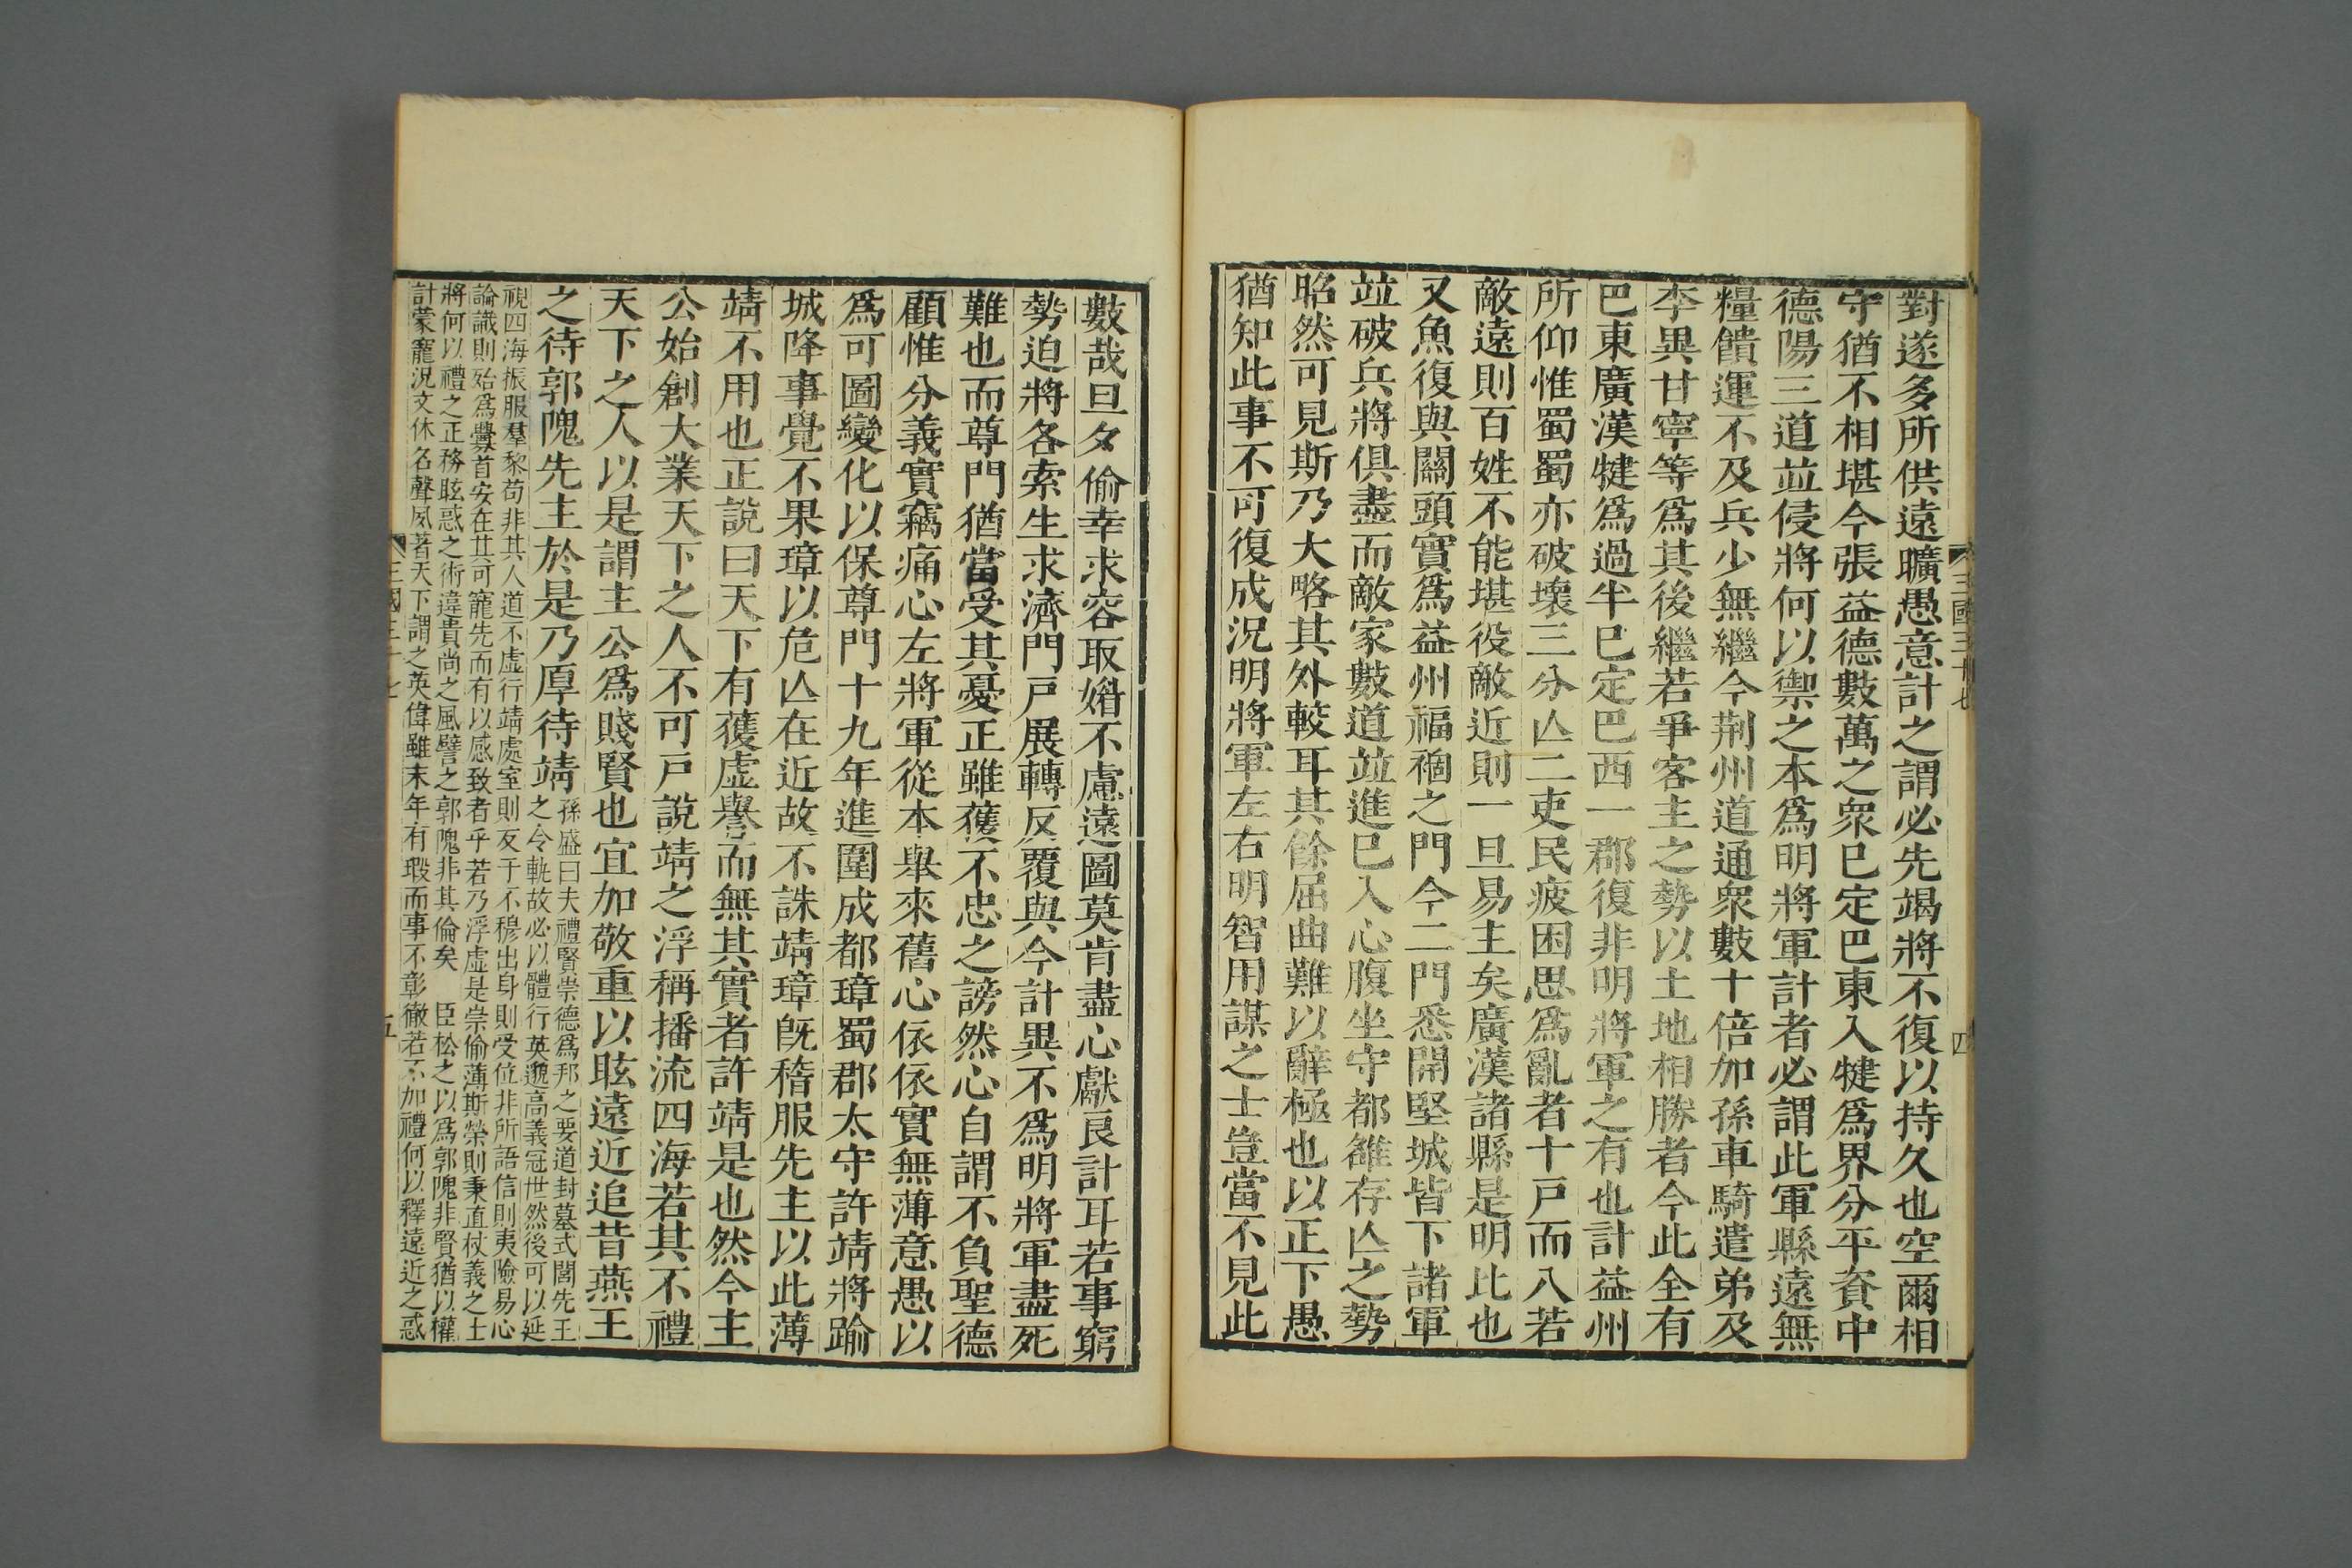 對遂多所供遠曠愚意計之謂必先竭將不復以持久也空爾相
守猶不相堪今張益德數萬之衆已定巴東入犍爲界分平資中
德陽三道竝侵將何以禦之本爲明將軍計者必謂此軍縣遠無
糧饋運不及兵少無繼今荆州道通衆數十倍加孫車騎遣弟及
李異甘寧等爲其後繼若爭客主之勢以土地相勝者今此全有
巴東廣漢犍爲過半已定巴西一郡復非明將軍之有也計益州
所仰惟蜀蜀亦破壞三分亾二吏民疲困思爲亂者十戸而八若
敵遠則百姓不能堪役敵近則一旦易主矣廣漢諸縣是明比也
又魚復與關頭實爲益州福禍之門今二門悉開堅城皆下諸軍
竝破兵將俱盡而敵家數道竝進已入心腹坐守都雒存亾之勢
昭然可見斯乃大略其外較耳其餘屈曲難以辭極也以正下愚
猶知此事不可復成況明將軍左右明智用謀之士豈當不見此
三國三十七
四
數哉旦夕偷幸求容取媚不慮遠圖莫肯盡心獻良計耳若事窮
勢迫將各索生求濟門戸展轉反覆與今計異不爲明將軍盡死
難也而尊門猶當受其憂正雖獲不忠之謗然心自謂不負聖德
顧惟分義實竊痛心左將軍從本舉來舊心依依實無薄意愚以
爲可圖變化以保尊門十九年進圍成都璋蜀郡太守許靖將踰
城降事覺不果璋以危亾在近故不誅靖璋旣稽服先主以此薄
靖不用也正說曰天下有獲虛譽而無其實者許靖是也然今主
公始創大業天下之人不可戸說靖之浮稱播流四海若其不禮
天下之人以是謂主公爲賤賢也宜加敬重以眩遠近追昔燕王
之待郭隗先主於是乃厚待靖
孫盛曰夫禮賢崇德爲邦之要道封墓式閭先王
之令軌故必以體行英邈高義冠世然後可以延
視四海振服羣黎苟非其人道不虛行靖處室則友于不穆出身則受位非所語信則夷險易心
論識則殆爲釁首安在其可寵先而有以感致者乎若乃浮虛是崇偷薄斯榮則秉直杖義之士
將何以禮之正務眩惑之術違貴尚之風譬之郭隗非其倫矣 臣松之以爲郭隗非賢猶以權
計蒙寵況文休名聲夙著天下謂之英偉雖末年有瑕而事不彰徹若不加禮何以釋遠近之惑
三國三十七
五